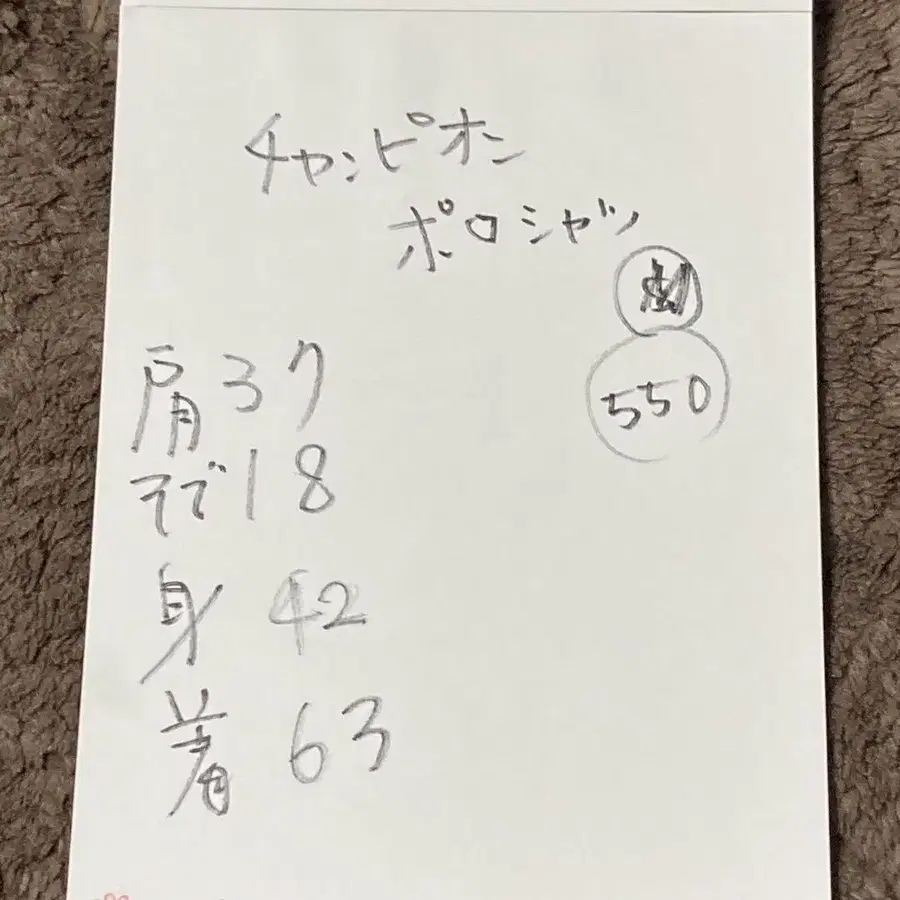 チャンピオン
ポロシャツ
550
肩37
そで18
身42
着63